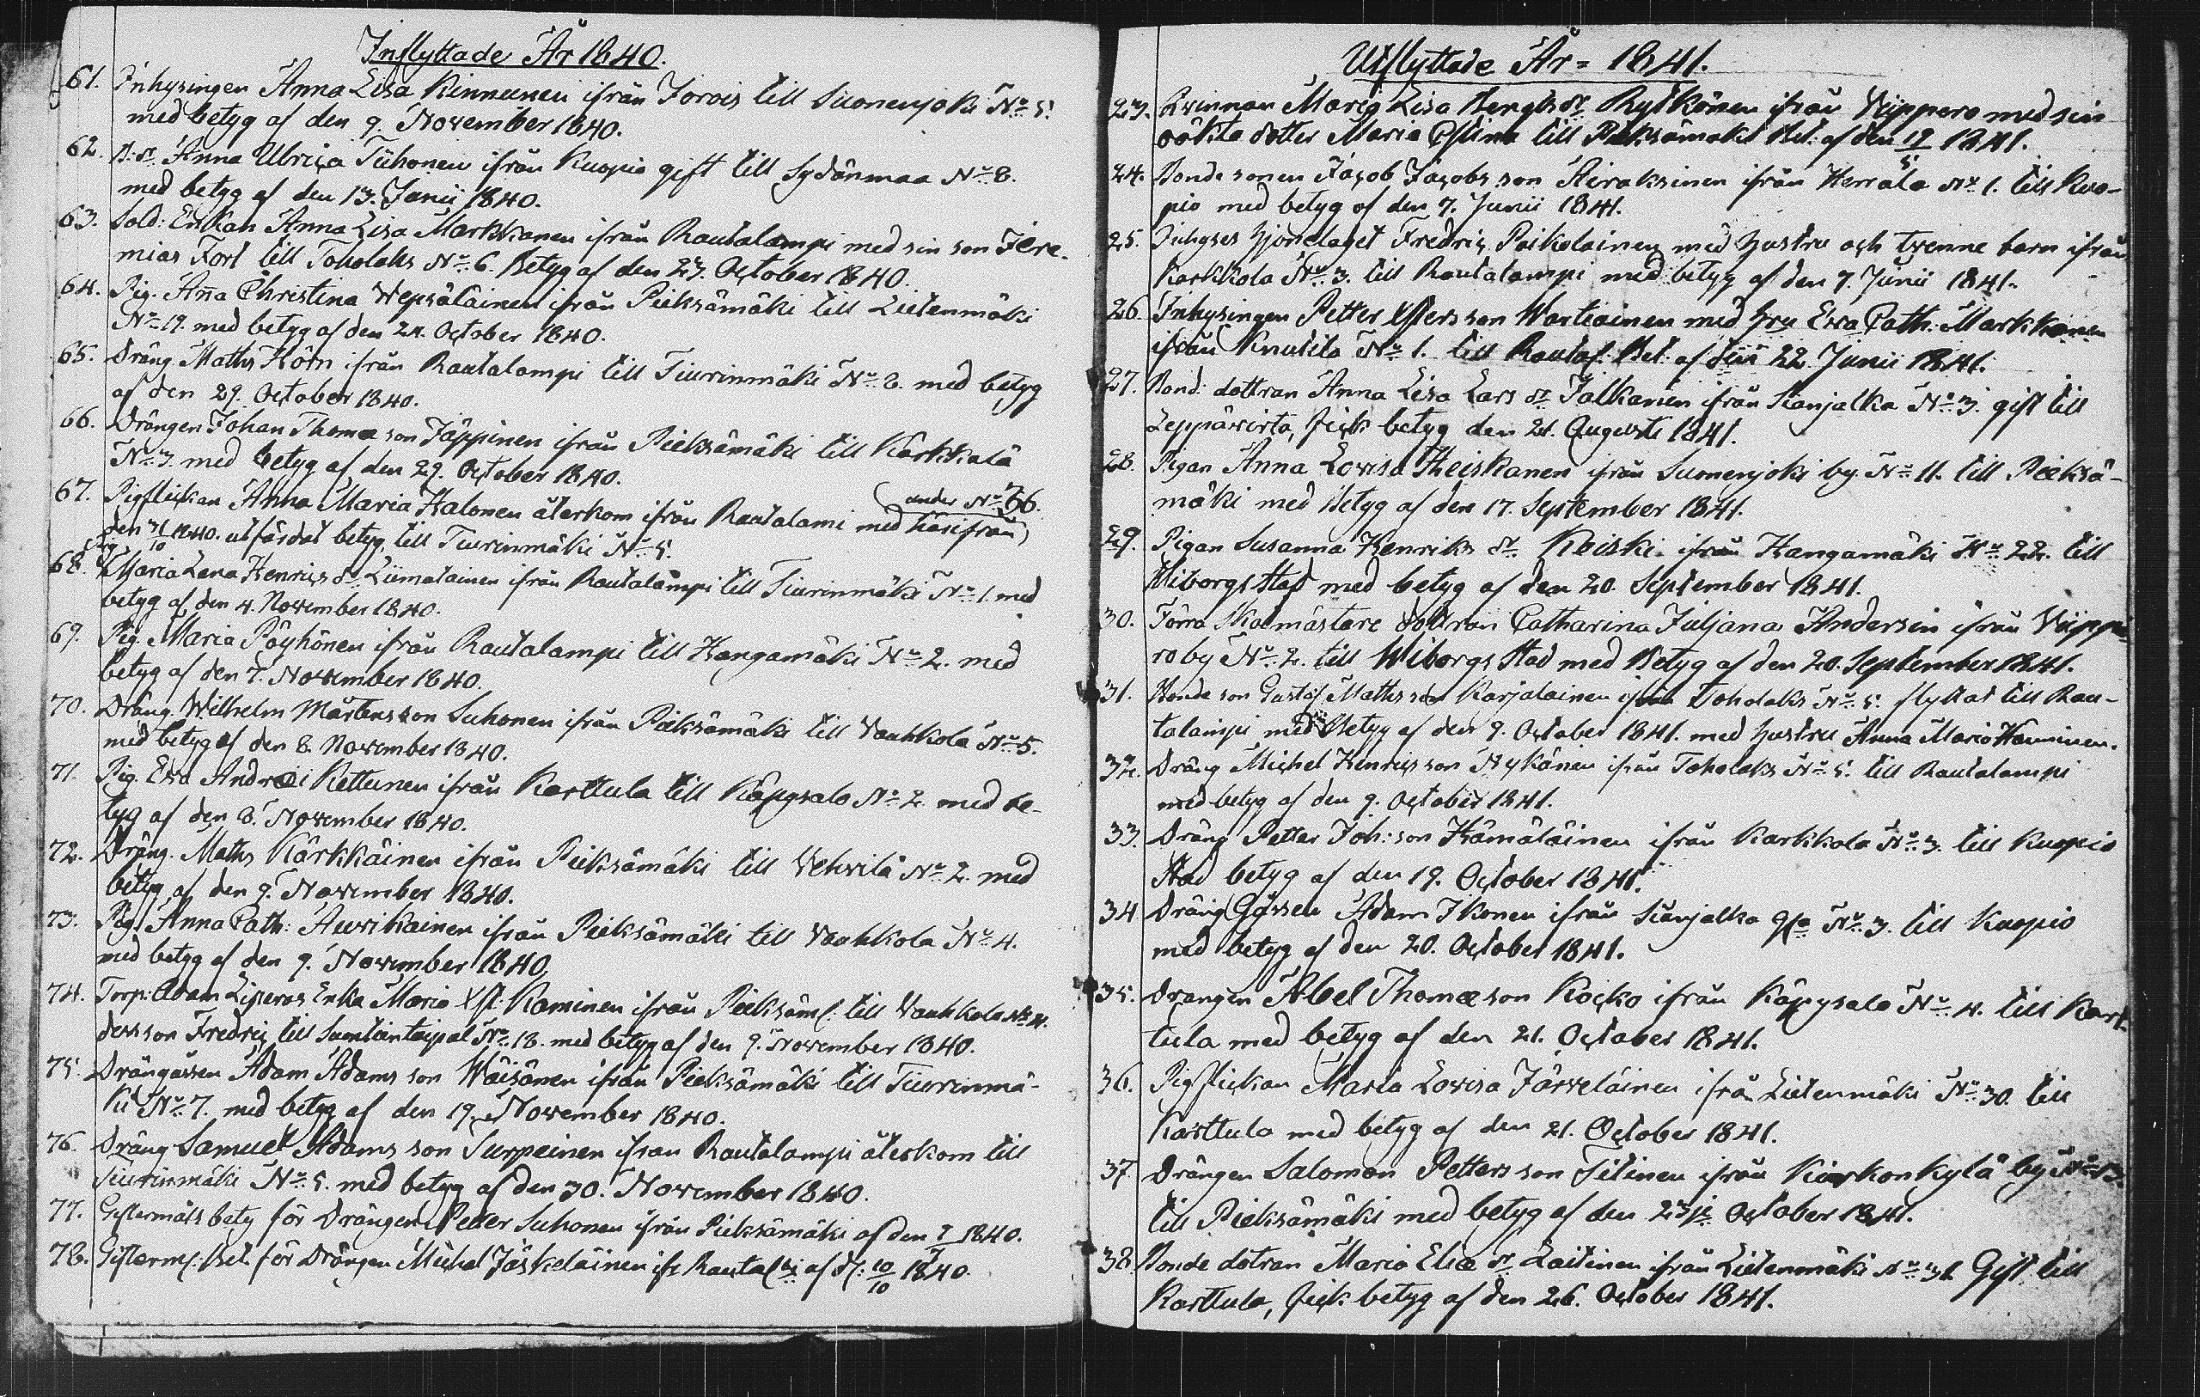 Inflyttade År 1840.
61. Inhysingen Anna Lisa Kinnunen ifrån Jorois till Suonenjoki No 5.
med betyg af den 9. November 1840.
62. B: dr Anna Ulrica Tiihonen ifrån Kuopio gift till Sydänmaa No 8.
med betyg af den 13. Junii 1840.
63. Sold: Enkan Anna Lisa Markkanen ifrån Rautalampi med sin son Jere-
mias Fort till Toholaks No 6. Betyg af den 27. October 1840.
64. Pig. Anna Christina Wepsäläinen ifrån Pieksämäki till Lietenmäki
No 19. med betyg af den 24. October 1840.
65. Dräng Maths Horn ifrån Rautalampi till Tiurinmäki No 8. med betyg
af den 29. October 1840.
66. Drängen Johan Thomæ son Jäppinen ifrån Pieksämäki till Kärkkälä
No 3. med betyg af den 29. October 1840.
67. Pigflickan Anna Maria Halonen återkom ifrån Rautalami med härifrån,
under No 66.
den 31/10 1840. utfärdat betyg till Tiurinmäki No 5.
68. Pig Maria Lena Henrics dr Liimatainen ifrån Rautalampi till Tiurinmäki No 1 med
betyg af den 4. November 1840.
69. Pig. Maria Pöyhönen ifrån Rautalampi till Kangamäki No 2. med
betyg af den 7. November 1840.
70. Dräng Wilhelm Mårtens son Suhonen ifrån Pieksämäki till Vauhkola No 5.
med betyg af den 8. November 1840.
71. Pig. Eva Andræi Kettunen ifrån Karttula till Käpysalo No 2. med be-
tyg af den 8. November 1840.
72. Dräng. Maths Kärkkäinen ifrån Pieksämäki till Vehvilä No 2. med
betyg af den 9. November 1840.
73. Pig. Anna Cath: Auvikainen ifrån Pieksämäki till Vauhkola No 4.
med betyg af den 9. November 1840,
74. Torp: Adam Enka Maria Xst: Kaminen ifrån Pieksäm: till Vauhkola No 4.
dess son Fredric till No 18. med betyg af den 9. November 1840.
75. Drängåssen Adam Adams son Wäisänen ifrån Pieksämäki till Tiurinmä-
ki No 7. med betyg af den 19. November 1840.
76. Dräng Samuel Adams son Surpeinen ifran Rautalampi återkom till
Tiurinmäki No 5. med betyg af den 30. November 1840.
77. Giftermåls bety för Drängen Petter Suhonen ifrån Pieksämäki af den 7/7 1840.
78. Gifterm: Bet. för Drängen Michel Jäskeläinen ifr Rautal: af d: 10/10 1840.
Utflyttade År = 1841.
23. Qvinnan Maria Lisa Bengts dr Rytkönen ifrån Viippero med sin
oäkta dotter Maria Cstina till Pieksämäki Bet: af den 19/5 1841.
24. Bonde sonen Jacob Jacobs son Airaksinen ifrån Herrala No 1. till Kuo-
pio med betyg af den 7. Junii 1841.
25. Inhyses hjonelaget Fredric Poikolainen med hustru och tvenne barn ifrån
Karkkola No 3. till Rautalampi med betyg af den 7. Junii 1841.
26. Inhysingen Petter Petters son Wartiainen med hru Eva Cath: Markkanen
ifrån Knutila No 1. till Rautal: Bet: af den 22. Junii 1841.
27. Bond: dottran Anna Lisa Lars dr Jalkanen ifrån Sianjalka No 3. gift till
Leppävirta, fick betyg den 21. Augusti 1841.
28. Pigan Anna Lovisa Heiskanen ifrån Suonenjoki by No 11. till Pieksä-
mäki med betyg af den 17. September 1841.
29. Pigan Susanna Henriks dr Keiski ifrån Kangamäki No 22. till
Wiborgs Stad med betyg af den 20. September 1841.
30. Förra Skolmästare dottran Catharina Juljana Andersin ifrån Viippe
ro by No 2. till Wiborgs Stad med Betyg af den 20. September 1841.
31. Bonde son Gustaf Maths son Karjalainen ifrån Toholaks No 5. flyttat till Rau-
talampi med Betyg af den 9. October 1841. med hustru Anna Maria Hänninen.
32. Dräng Michel Henrics son Nykänen ifrån Toholaks No 5. till Rautalampi
med betyg af den 9. October 1841.
33. Dräng Petter Joh: son Hämäläinen ifrån Karkkola No 3. till Kuopio
Stad betyg af den 19. October 1841.
34 Dräng Gåssen Adam Ikonen ifrån Sianjalka No 3. till Kuopio
med betyg af den 20. October 1841.
35. Drangen Abel Thomæ son Kocko ifrån Käpysalo No 4. till Kart-
tula med betyg af den 21. October 1841.
36. Pigflickan Maria Lovisa Järveläinen ifrån Lietenmäki No 30. till
Karttula med betyg af den 21. October 1841.
37 Drängen Salomon Petters son Titinen ifrån Kirkonkylä by No 3.
till Pieksämäki med betyg af den 23je October 1841.
38. Bonde dotran Maria Eliæ dr Laitinen ifrån Lietenmäki No 31. Gift till
Karttula, fick betyg af den 26. October 1841.